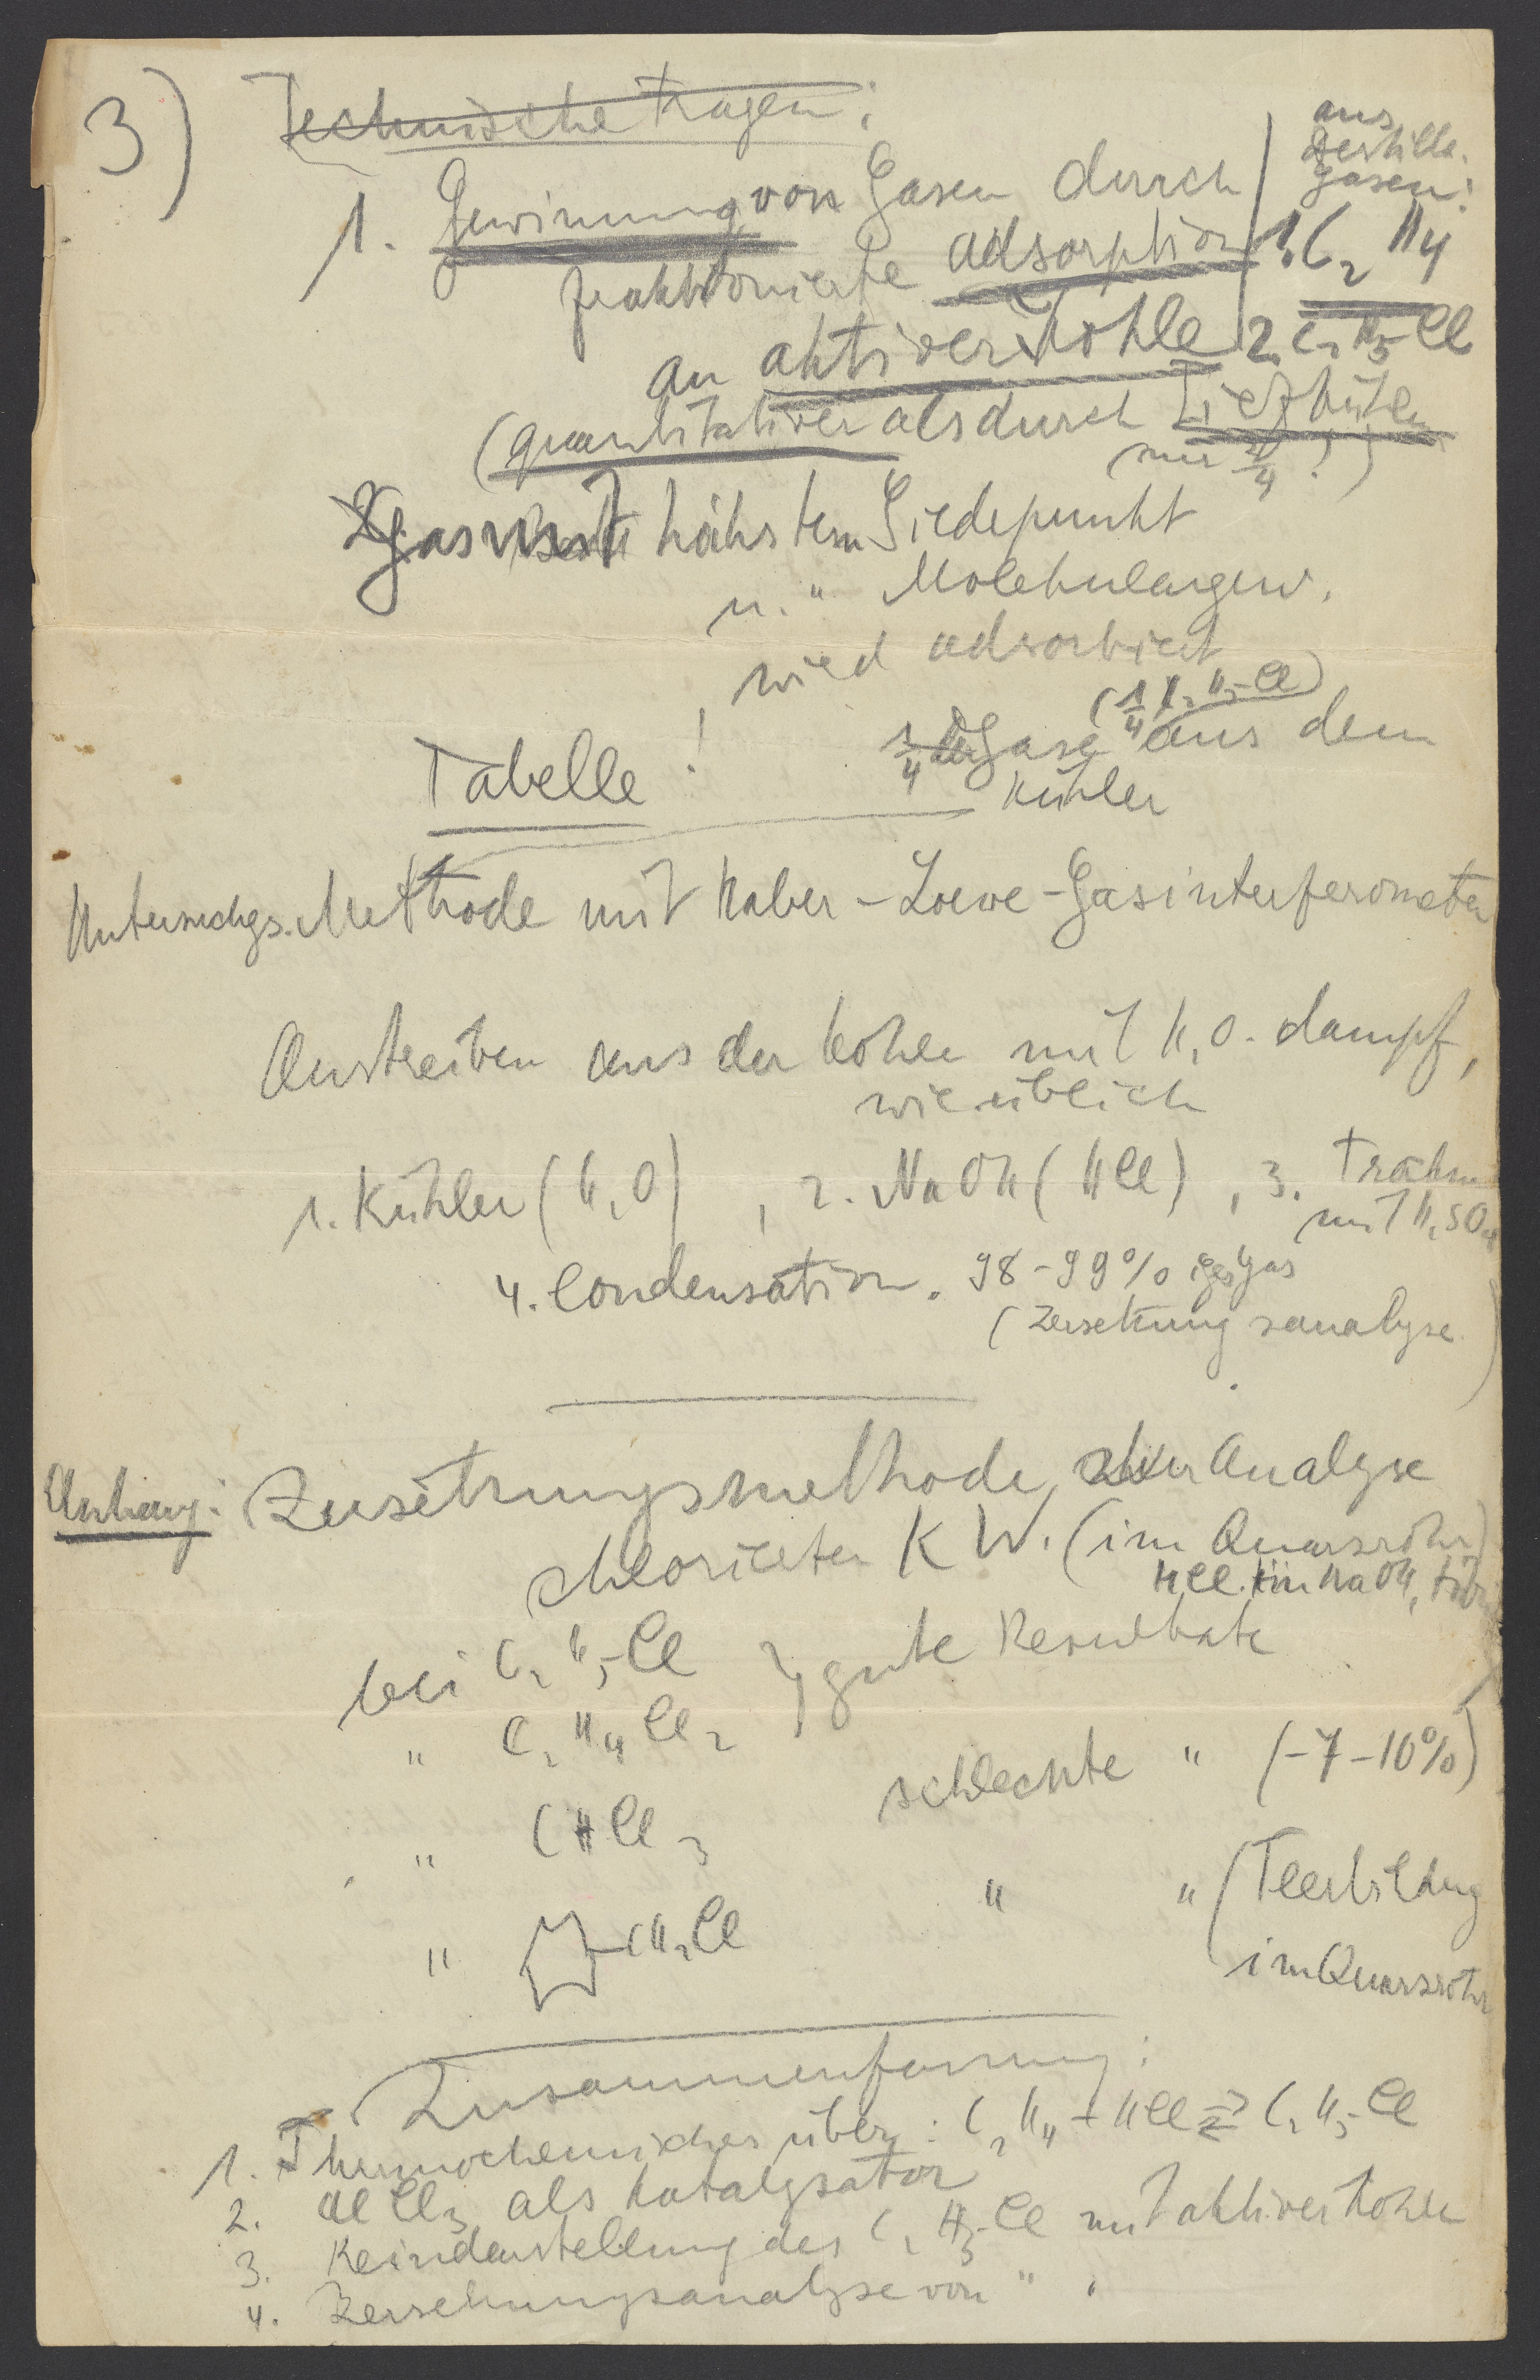 3) Technische Fragen:
1. Gewinnung von Gasen durch
fraktionierte Adsorption
an aktiver Kohle
aus
destill.
Gasen:
1. C2H4
2. C2H5Cl
(quantitativer als durch Tiefkühlen
nur 3/4!)
Gas mit höchstem Siedepunkt
u. " Molekulargew.
wird adsorbiert
(1/4 C2H5-Cl)
Tabelle!
1/4 der Gase aus dem
Kühler
Untersuchgs. Methode mit Haber-Loewe-Gasinterferometer
Austreiben aus der Kohle mit H2O-dampf,
wie üblich
1. Kühler (H2O), 2. NaOH (HCl), 3. Trockn
mit H2SO4
4. Condensation. 98-99% iges Gas
(Zersetzungsanalyse.)
Anhang: Zersetzungsmethode zur Analyse
chlorierter KW. (im Quarzrohr)
HCl in NaOH,
bei C2H5-Cl } gute Resultate
" C2H4Cl2
schlechte " (-7-10%)
" CHCl3
" CH2Cl " " (Teerbildung
im Quarzrohr
Zusammenfassung:
1. Thermochemisches über: C2H4 + HCl ⇄ C2H5-Cl
2. AlCl3 als Katalysator
3. Reindarstellung des C2H5-Cl mit aktiver Kohle
4. Zersetzungsanalyse von " "